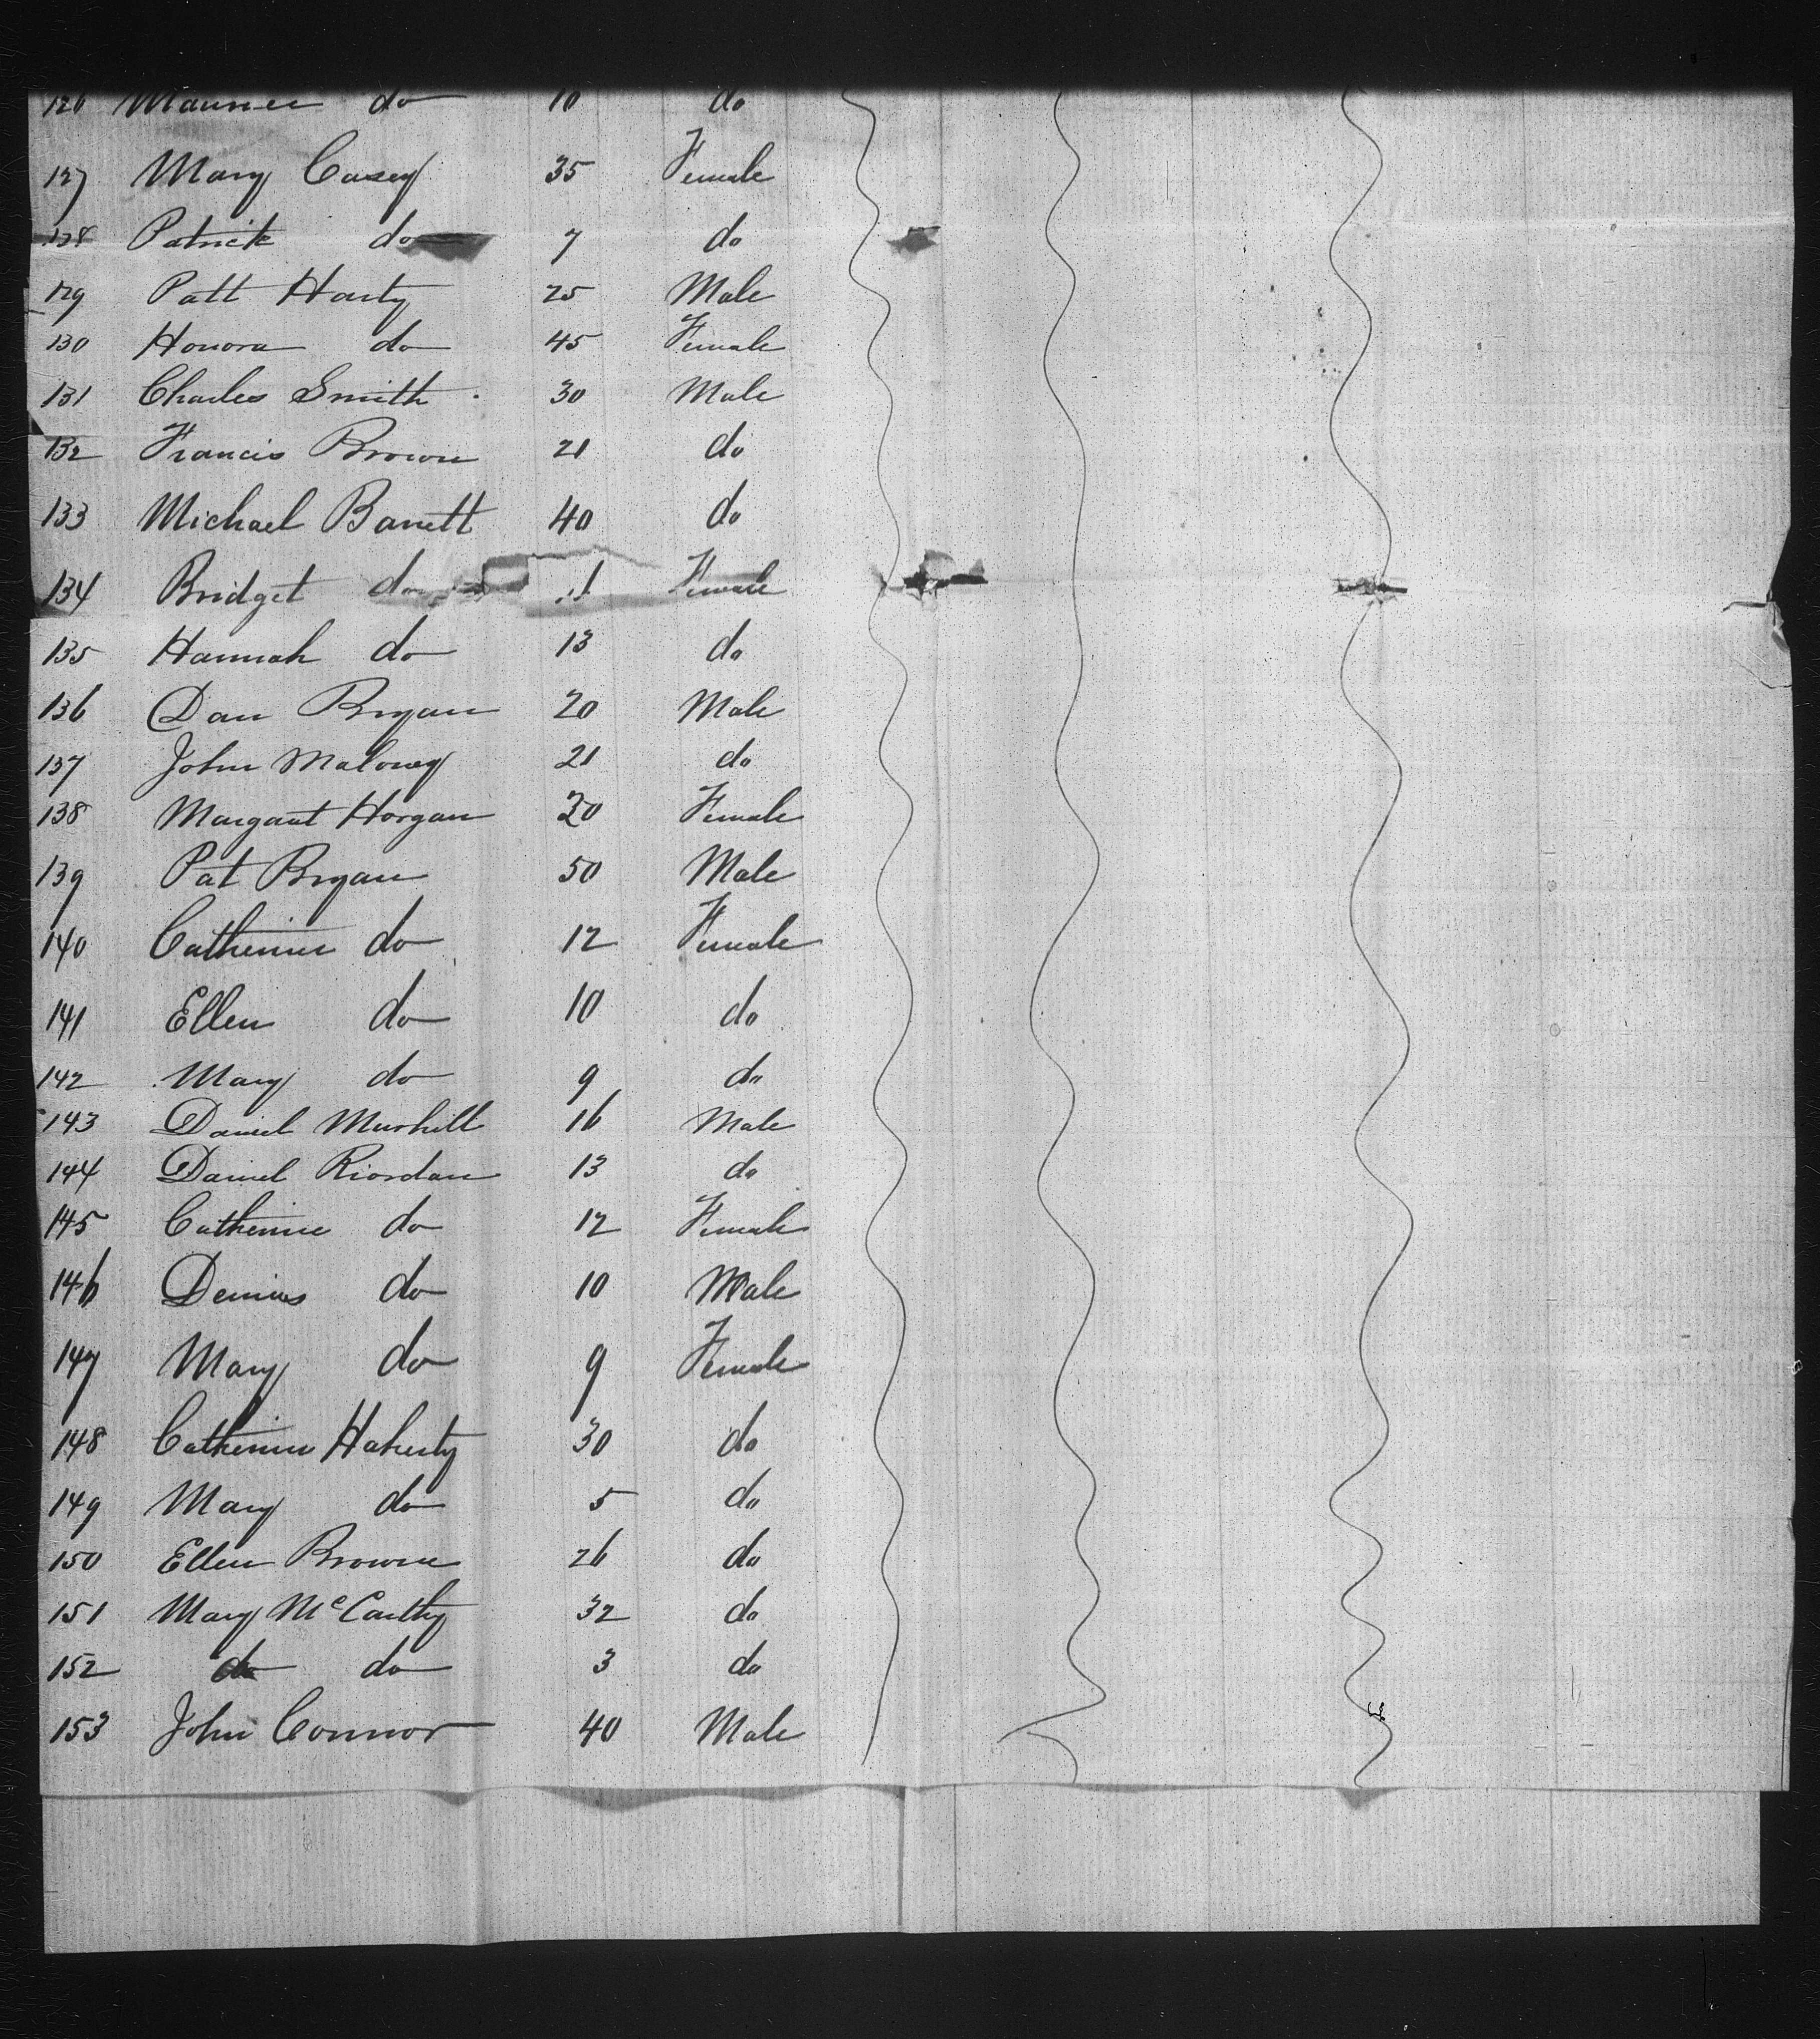 126 Maurice do 10 do
127 Mary Casey 35 Female
128 Patrick do 7 do
129 Patt Harty 25 Male
130 Honora do 45 Female
131 Charles Smith 30 Male
132 Francis Brown 21 do
133 Michael Barrett 40 do
134 Bridget do Female
135 Hannah do 13 do
136 Dan Bryan 20 Male
137 John Maloney 21 do
138 Margaret Horgan 20 Female
139 Pat Bryan 50 Male
140 Catherine do 12 Female
141 Ellen do 10 do
142 Mary do 9 do
143 Daniel 16 Male
144 Daniel Riordan 13 do
145 Catherine do 12 Female
146 Dennis do 10 Male
147 Mary do 9 Female
148 Catherine Haherty 30 do
149 Mary do 5 do
150 Ellen Browne 26 do
151 Mary McCarthy 32 do
152 do do 3 do
153 John Connor 40 Male